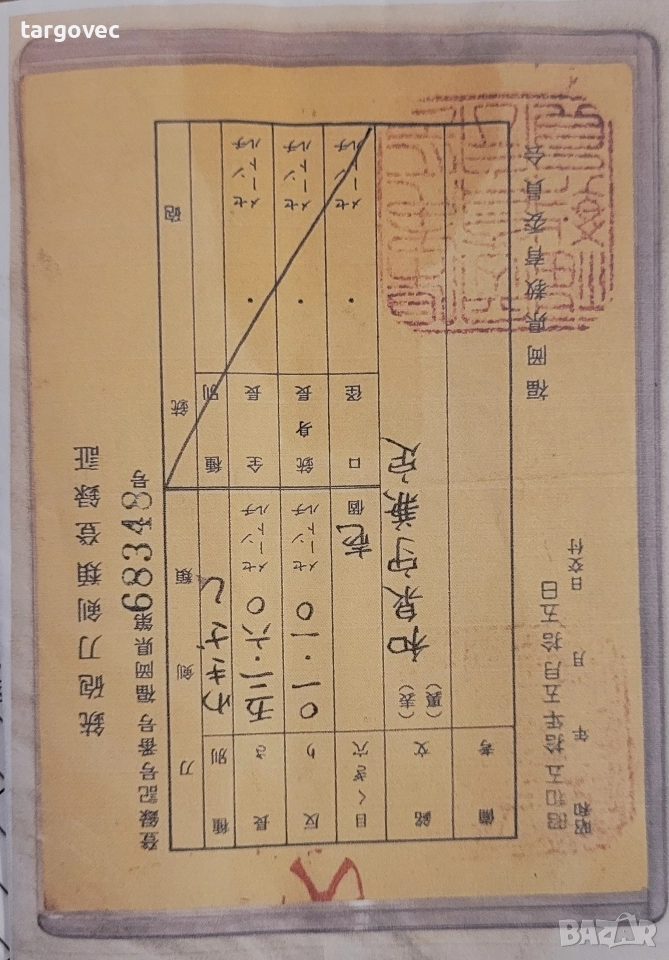 targovec
銃砲刀剣類登録証
登録記号番号 福岡県第 68348 号
刀剣類 銃砲
種別 わきざし 種別
長さ 五二・六〇 センチメートル 全長 ・ センチメートル
反り 〇一・一〇 センチメートル 銃身長 ・ センチメートル
目くぎ穴 壱個 口径 ・ センチメートル
銘文 (表) 和泉守兼定
(裏)
備考
昭和五拾年五月拾五日
昭和 年 月 日交付
福岡県教育委員会
BAZAR